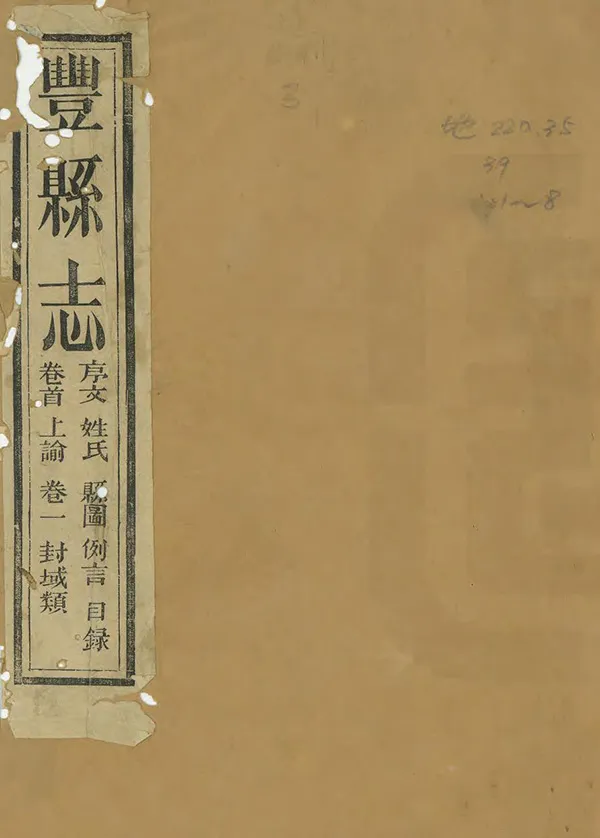 豐縣志
序文 姓氏 縣圖 例言 目録
卷首 上諭 卷一 封域類
3
地 220.35
39
8